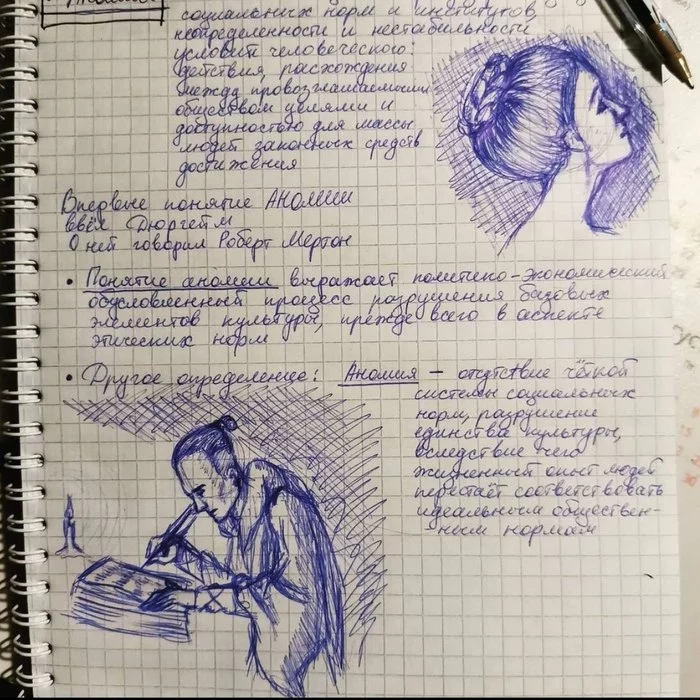 социальных норм и институтов,
неопределенности и нестабильности
условий человеческого
действия, расхождения
между провозглашаемыми
обществом целями и
доступностью для массы
людей законных средств
достижения
Впервые понятие АНОМИИ
ввёл Дюргейм
О ней говорил Роберт Мертон
• Понятие аномии выражает политико-экономический
обусловленный процесс разрушения базовых
элементов культуры, прежде всего в аспекте
этических норм
• Другое определение: Аномия – отсутствие чёткой
системы социальных
норм, разрушение
единства культуры,
вследствие чего
жизненный опыт людей
перестаёт соответствовать
идеальным обществен-
-ным нормам